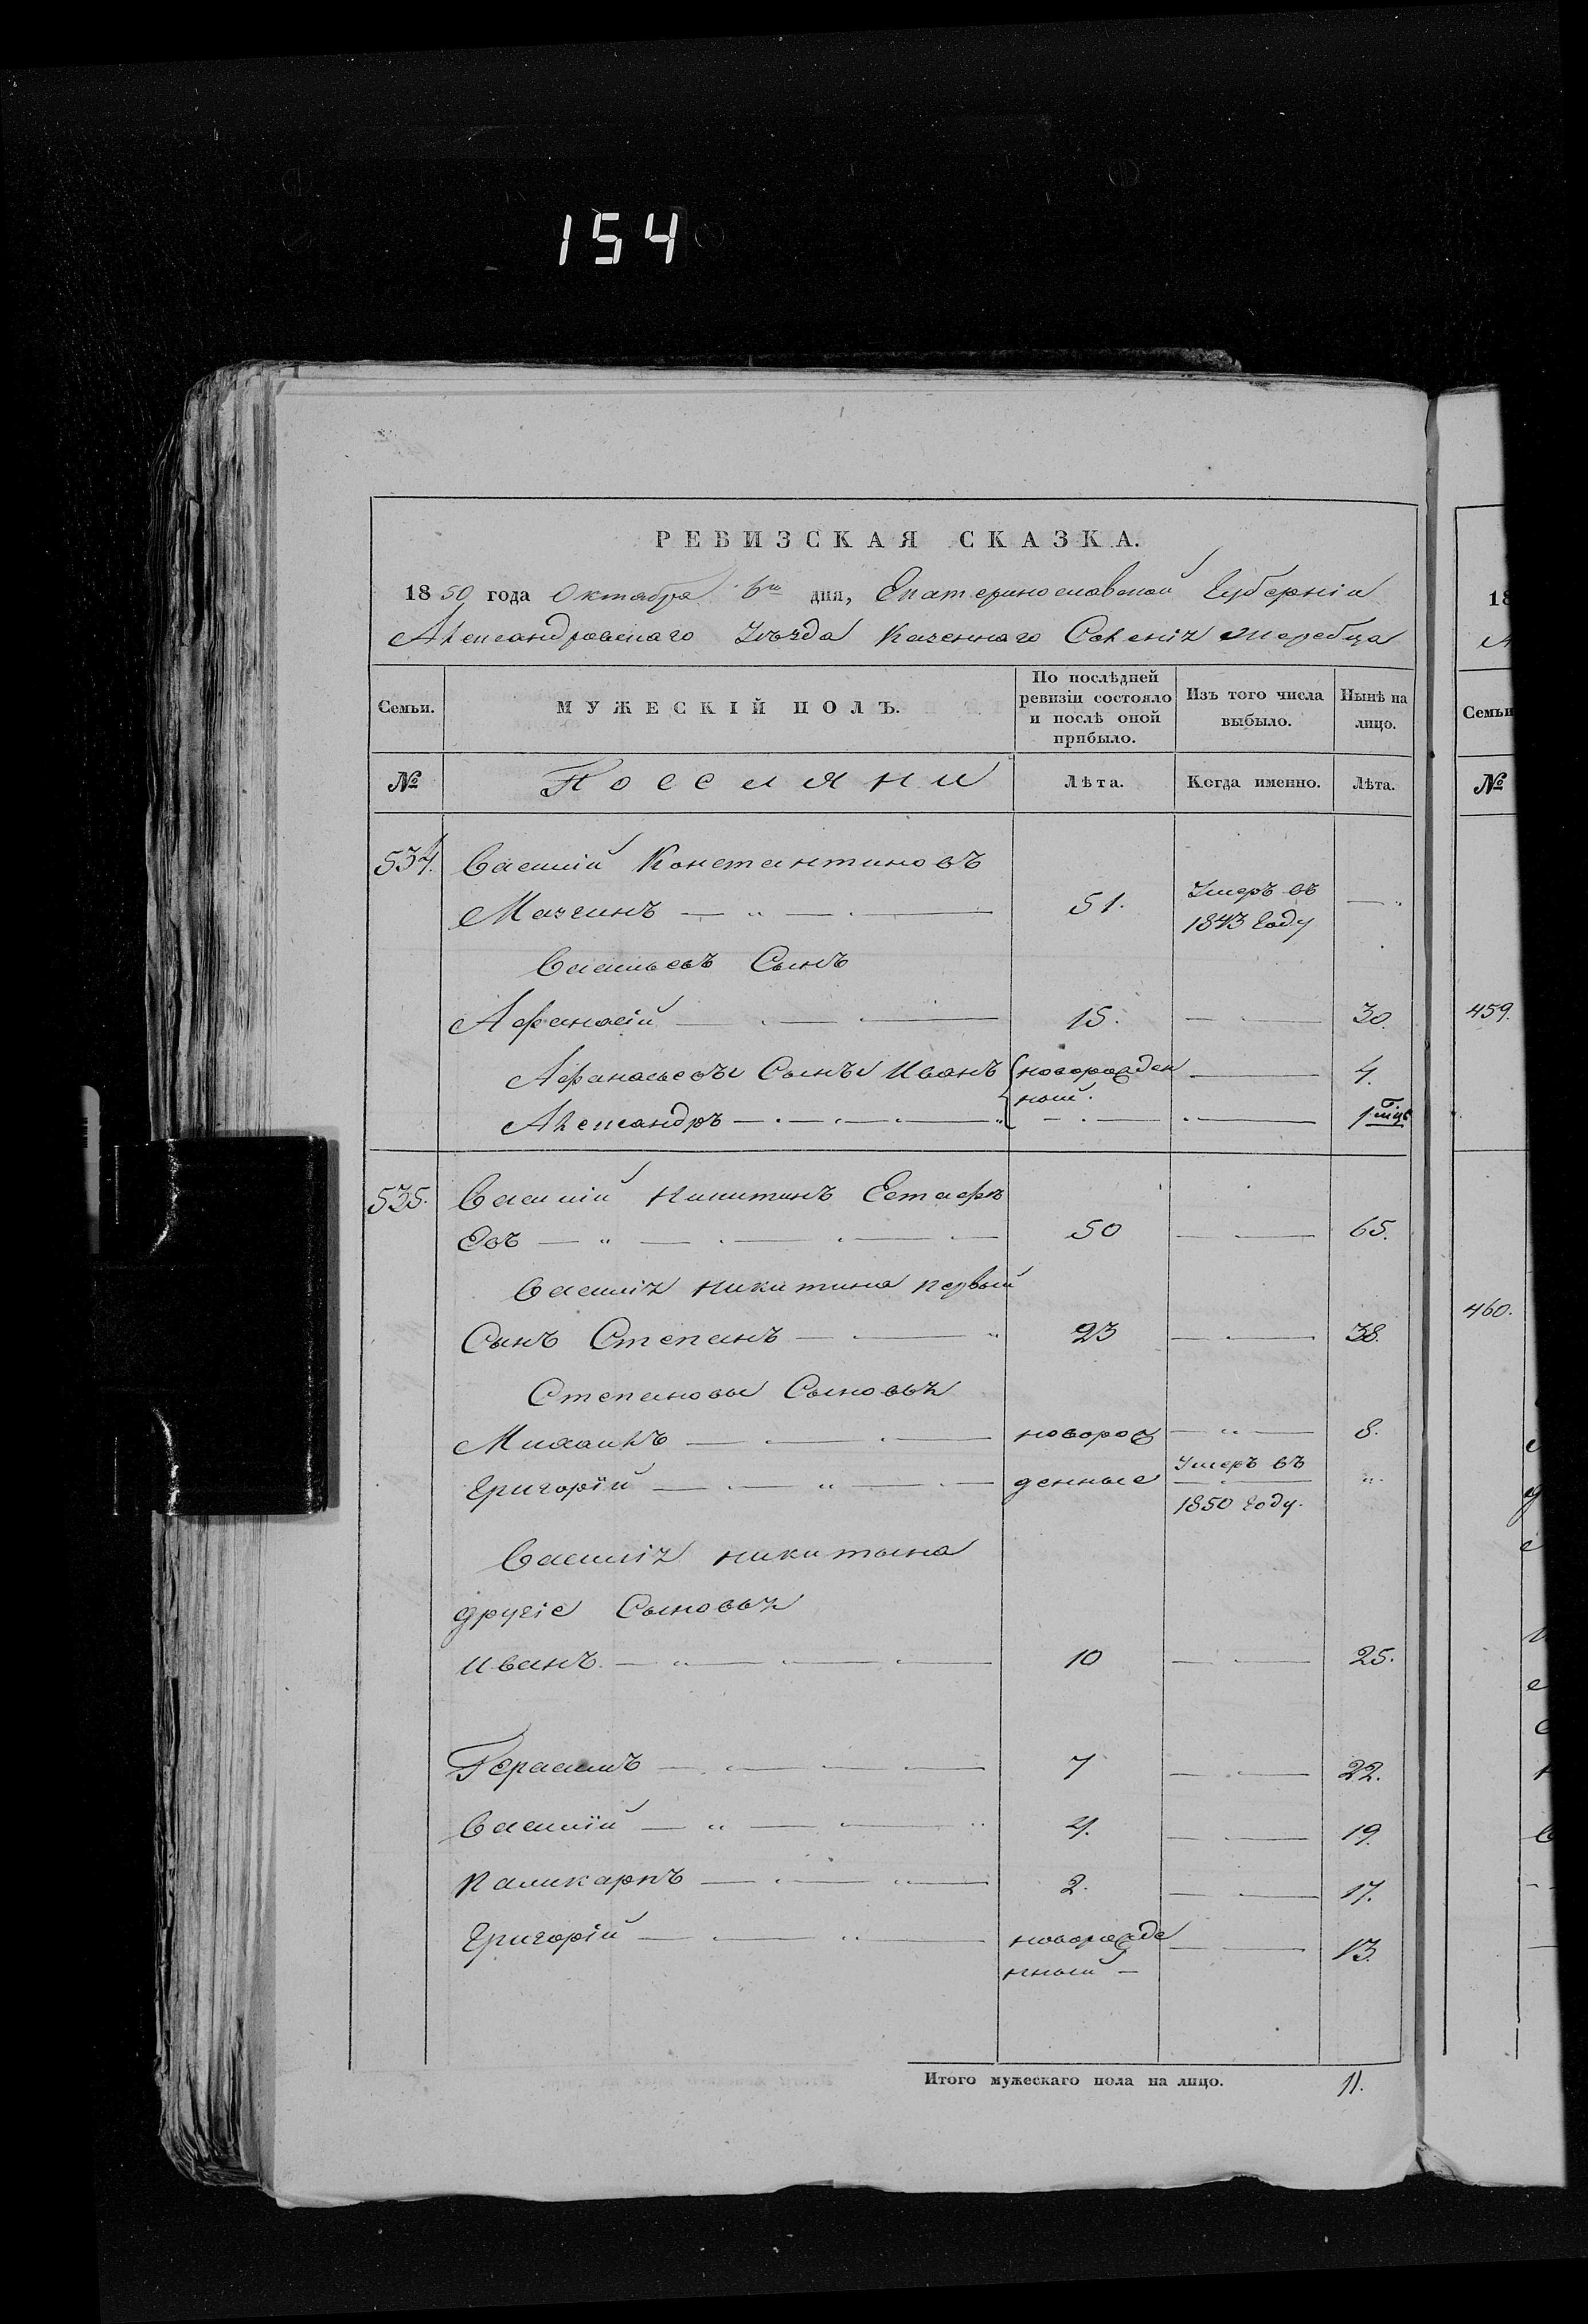 154
РЕВИЗСКАЯ СКАЗКА.
1850 года Октября 6го дня, Екатеринославской Губерніи
Александровскаго Уѣзда Казеннаго Селенія Жеребца
Семьи. МУЖЕСКІЙ ПОЛЪ. По послѣдней ревизіи состояло и послѣ оной прибыло. Изъ того числа выбыло. Нынѣ на лицо.
№ Поселяни Лѣта. Когда именно. Лѣта.
534. Василій Константиновъ
Мазгинъ — " — 51. Умеръ въ 1843 Году — "
Васильевъ Сынъ
Афанасій — 15. — 30.
Афанасьевы Сынъи Иванъ новорожден — 4.
Александръ — ный. — 1 мцъ
535. Василій Никитинъ Естафѣ
Евъ — " — 50 — 65.
Василія Никитина первый
Сынъ Степанъ — " 23 — 38.
Степановы Сыновья
Михаилъ — новорож — " — 8.
Григорій — " — денные Умеръ въ 1850 Году. "
Василія Никитина
другіе Сыновья
Иванъ — 10 — 25.
Герасимъ — 7 — 22.
Василій — " — 4. — 19.
Паликарпъ — 2. — 17.
Григорій — " — новорожде — 13.
нный —
Итого мужескаго пола на лицо. 11.
18
Семьи
№
459.
460.